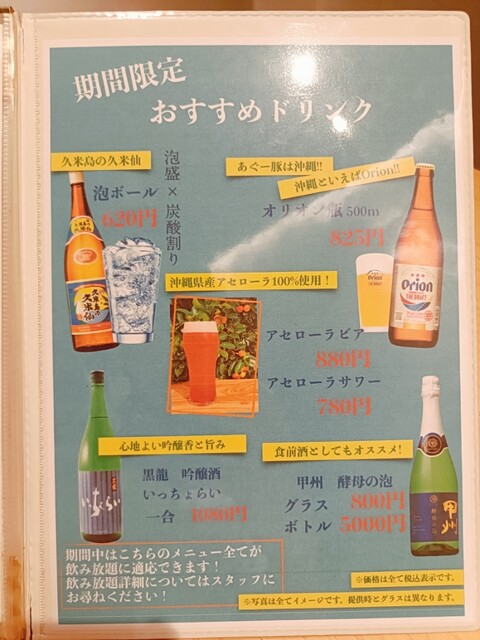 期間限定
おすすめドリンク
久米島の久米仙
泡ボール
620円
泡盛×炭酸割り
あぐー豚は沖縄!!
沖縄といえばOrion!!
オリオン瓶 500m
825円
久米島の
久米仙
Orion
THE DRAFT
Orion
THE DRAFT
沖縄県産アセローラ100%使用!
アセローラビア
880円
アセローラサワー
780円
心地よい吟醸香と旨み
黒龍 吟醸酒
いっちょらい
一合 1080円
いっちょらい
食前酒としてもオススメ!
甲州 酵母の泡
グラス 800円
ボトル 5000円
甲州
期間中はこちらのメニュー全てが
飲み放題に適応できます!
飲み放題詳細についてはスタッフに
お尋ねください!
※価格は全て税込表示です。
※写真は全てイメージです。提供時とグラスは異なります。